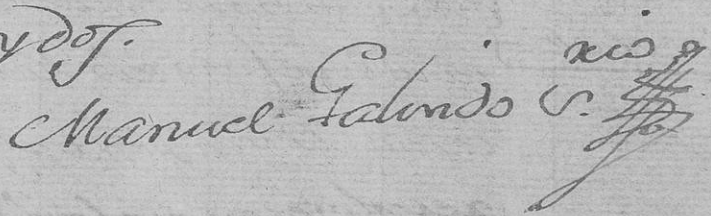 y dos.
Manuel Galindo S.rio